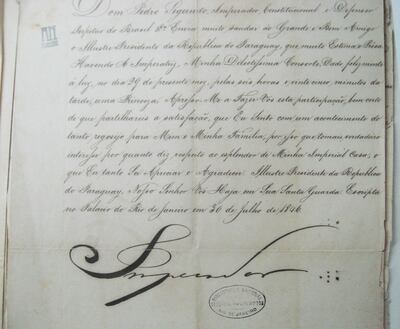 Dom Pedro Segundo, Imperador Constitucional e Defensor
Perpetuo do Brasil &ª Envia muito saudar ao Grande e Bom Amigo
o Illustre Presidente da Republica do Paraguay, que muito Estima e Présa.
Havendo A Imperatriz, Minha Dilectissima Consorte, Dado felizmente
á luz, no dia 29 do presente mez, pelas seis horas e vinte cinco minutos da
tarde, uma Princeza, Apresso-Me a Fazer-Vos esta participação, bem certo
de que partilhareis a satisfação, que Eu Sinto com um acontecimento de
tanto regosijo para Mim e Minha Familia, por isso que tomais verdadeiro
interesse por quanto diz respeito ao esplendor de Minha Imperial Casa; o
que Eu tanto Sei Apreciar e Agradecer. Illustre Presidente da Republica
do Paraguay, Nosso Senhor Vos Haja em Sua Santa Guarda. Escripta
no Palacio do Rio de Janeiro em 30 de Julho de 1846.
Imperador
BIBLIOTHECA NACIONAL
RIO DE JANEIRO